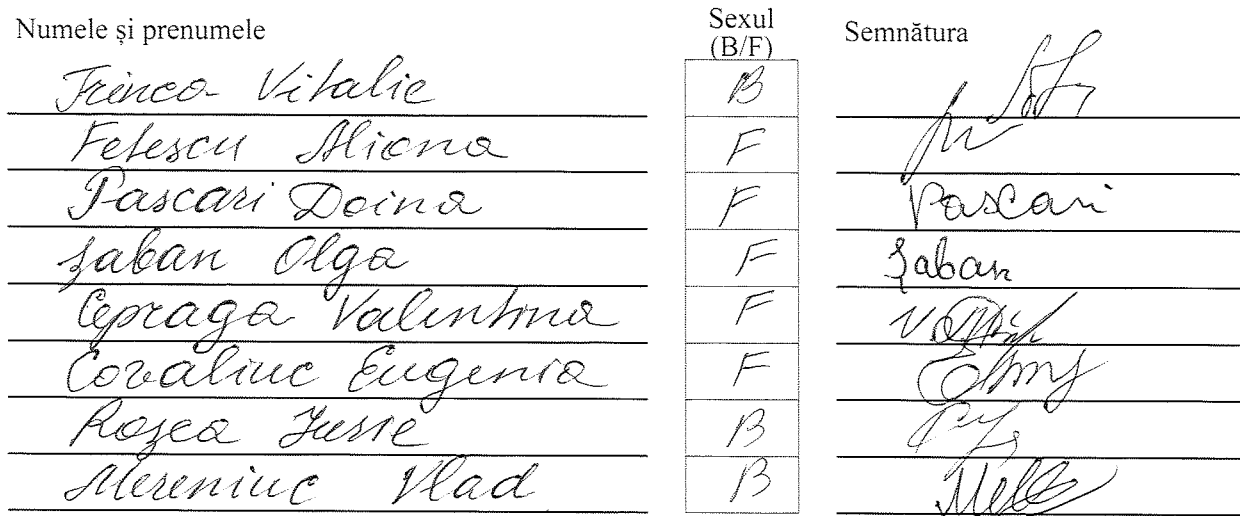 Numele și prenumele Sexul (B/F) Semnătura
Trinca Vitalie B
Fetescu Aliona F
Pascari Doina F Pascari
Țaban Olga F Țaban
Cepraga Valentina F
Covaliuc Eugenia F
Roșca Iurie B
Mereniuc Vlad B